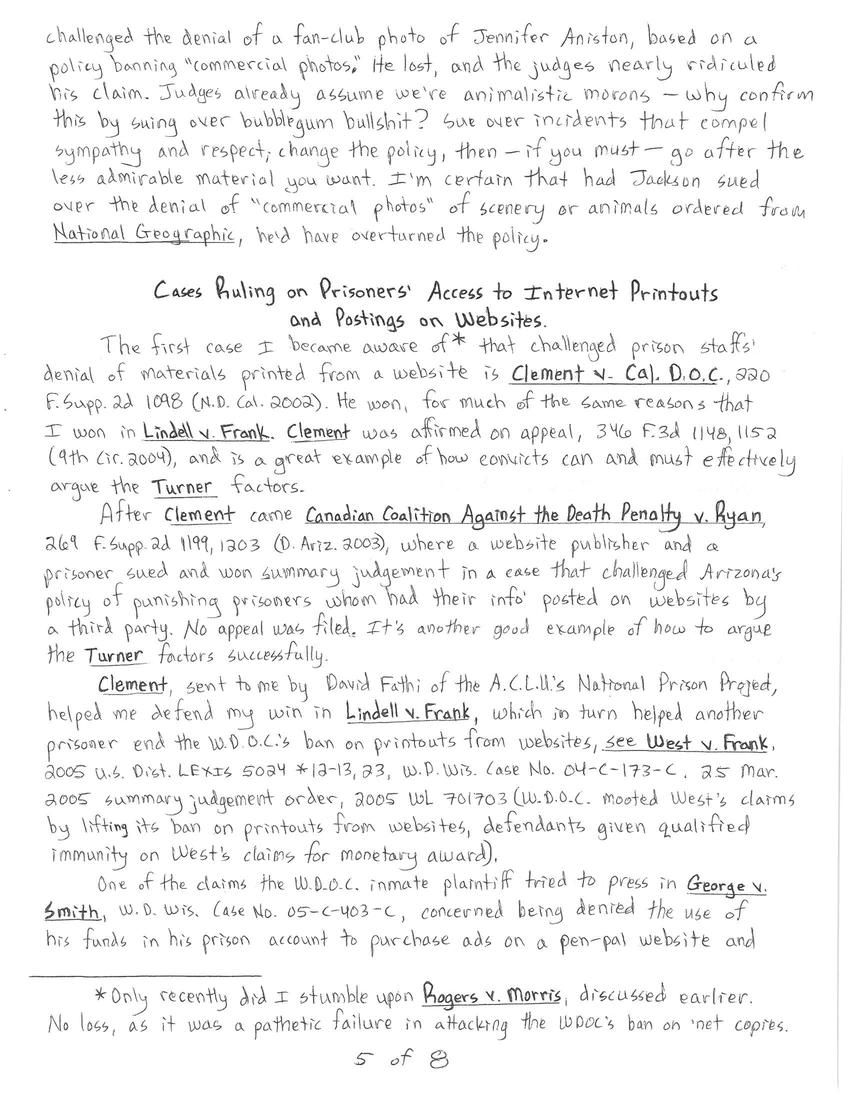 challenged the denial of a fan-club photo of Jennifer Aniston, based on a
policy banning "commercial photos." He lost, and the judges nearly ridiculed
his claim. Judges already assume we're animalistic morons — why confirm
this by suing over bubblegum bullshit? Sue over incidents that compel
sympathy and respect; change the policy, then — if you must — go after the
less admirable material you want. I'm certain that had Jackson sued
over the denial of "commercial photos" of scenery or animals ordered from
National Geographic, he'd have overturned the policy.
Cases Ruling on Prisoners' Access to Internet Printouts
and Postings on Websites.
The first case I became aware of* that challenged prison staffs'
denial of materials printed from a website is Clement v. Cal. D.O.C., 220
F. Supp. 2d 1098 (N.D. Cal. 2002). He won, for much of the same reasons that
I won in Lindell v. Frank. Clement was affirmed on appeal, 346 F.3d 1148, 1152
(9th Cir. 2004), and is a great example of how convicts can and must effectively
argue the Turner factors.
After Clement came Canadian Coalition Against the Death Penalty v. Ryan,
269 F. Supp. 2d 1199, 1203 (D. Ariz. 2003), where a website publisher and a
prisoner sued and won summary judgement in a case that challenged Arizona's
policy of punishing prisoners whom had their info' posted on websites by
a third party. No appeal was filed. It's another good example of how to argue
the Turner factors successfully.
Clement, sent to me by David Fathi of the A.C.L.U.'s National Prison Project,
helped me defend my win in Lindell v. Frank, which in turn helped another
prisoner end the W.D.O.C.'s ban on printouts from websites, see West v. Frank,
2005 U.S. Dist. LEXIS 5024 *12-13, 23, W.D. Wis. Case No. 04-C-173-C, 25 Mar.
2005 summary judgement order, 2005 WL 701703 (W.D.O.C. mooted West's claims
by lifting its ban on printouts from websites, defendants given qualified
immunity on West's claims for monetary award).
One of the claims the W.D.O.C. inmate plaintiff tried to press in George v.
Smith, W.D. Wis. Case No. 05-C-403-C, concerned being denied the use of
his funds in his prison account to purchase ads on a pen-pal website and
*Only recently did I stumble upon Rogers v. Morris, discussed earlier.
No loss, as it was a pathetic failure in attacking the WDOC's ban on 'net copies.
5 of 8